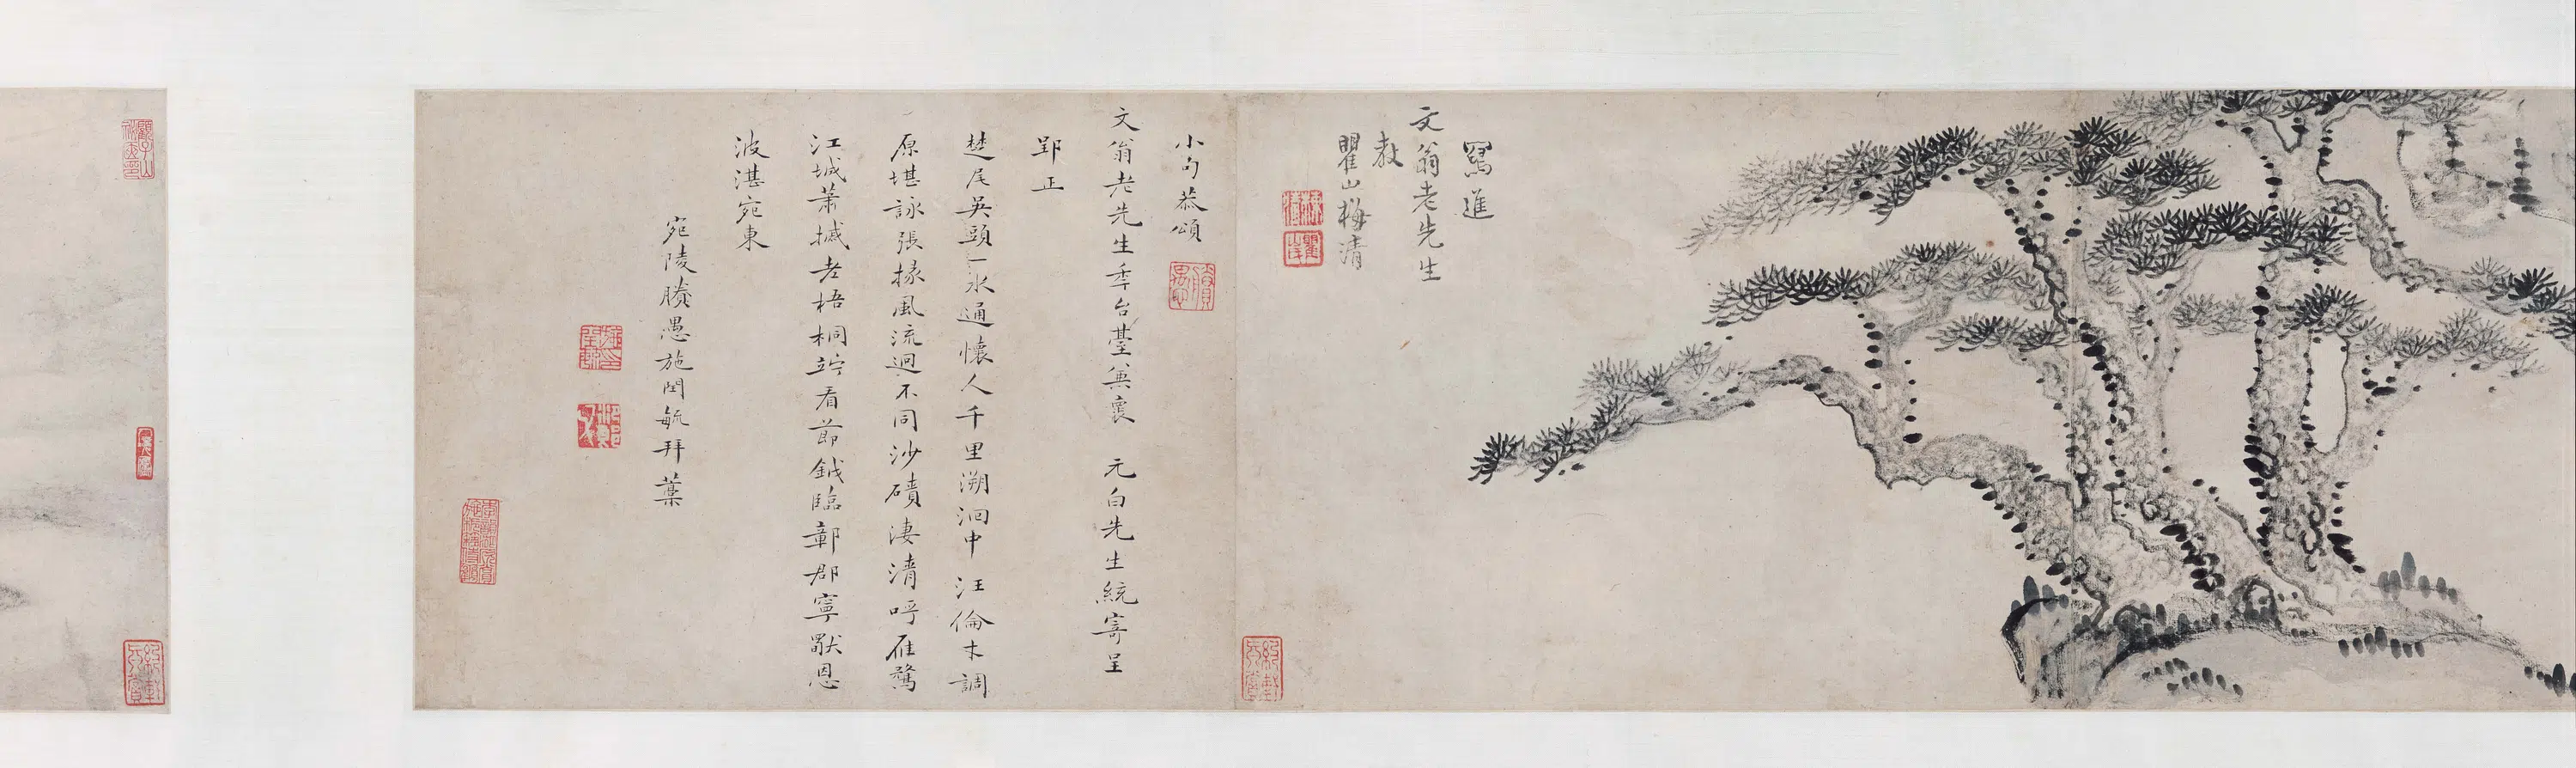 寫進
文翁老先生
教
瞿山梅清
小句恭頌
文翁老先生季台臺兼裒 元白先生統寄呈
郢正
楚尾吳頭一水通懷人千里溯洄中汪倫未調
原堪詠張掾風流迥不同沙磧淒清呼雁鶩
江城蕭摵老梧桐竚看節鉞臨鄣郡寧獸恩
波湛宛東
宛陵勝愚施閏毓拜藁